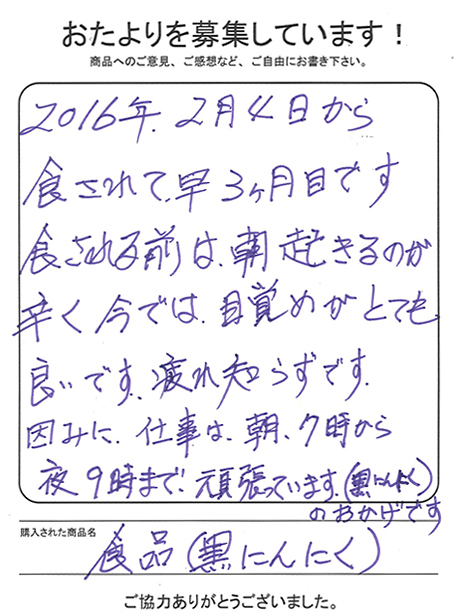 おたよりを募集しています！
商品へのご意見、ご感想など、ご自由にお書き下さい。
2016年.2月4日から
食されて.早3ヶ月目です
食される前は、朝起きるのが
辛く今では.目覚めがとても
良いです.疲れ知らずです.
因みに.仕事は、朝、7時から
夜9時まで、頑張っています.(黒にんにく)
のおかげです
購入された商品名
食品(黒にんにく)
ご協力ありがとうございました。